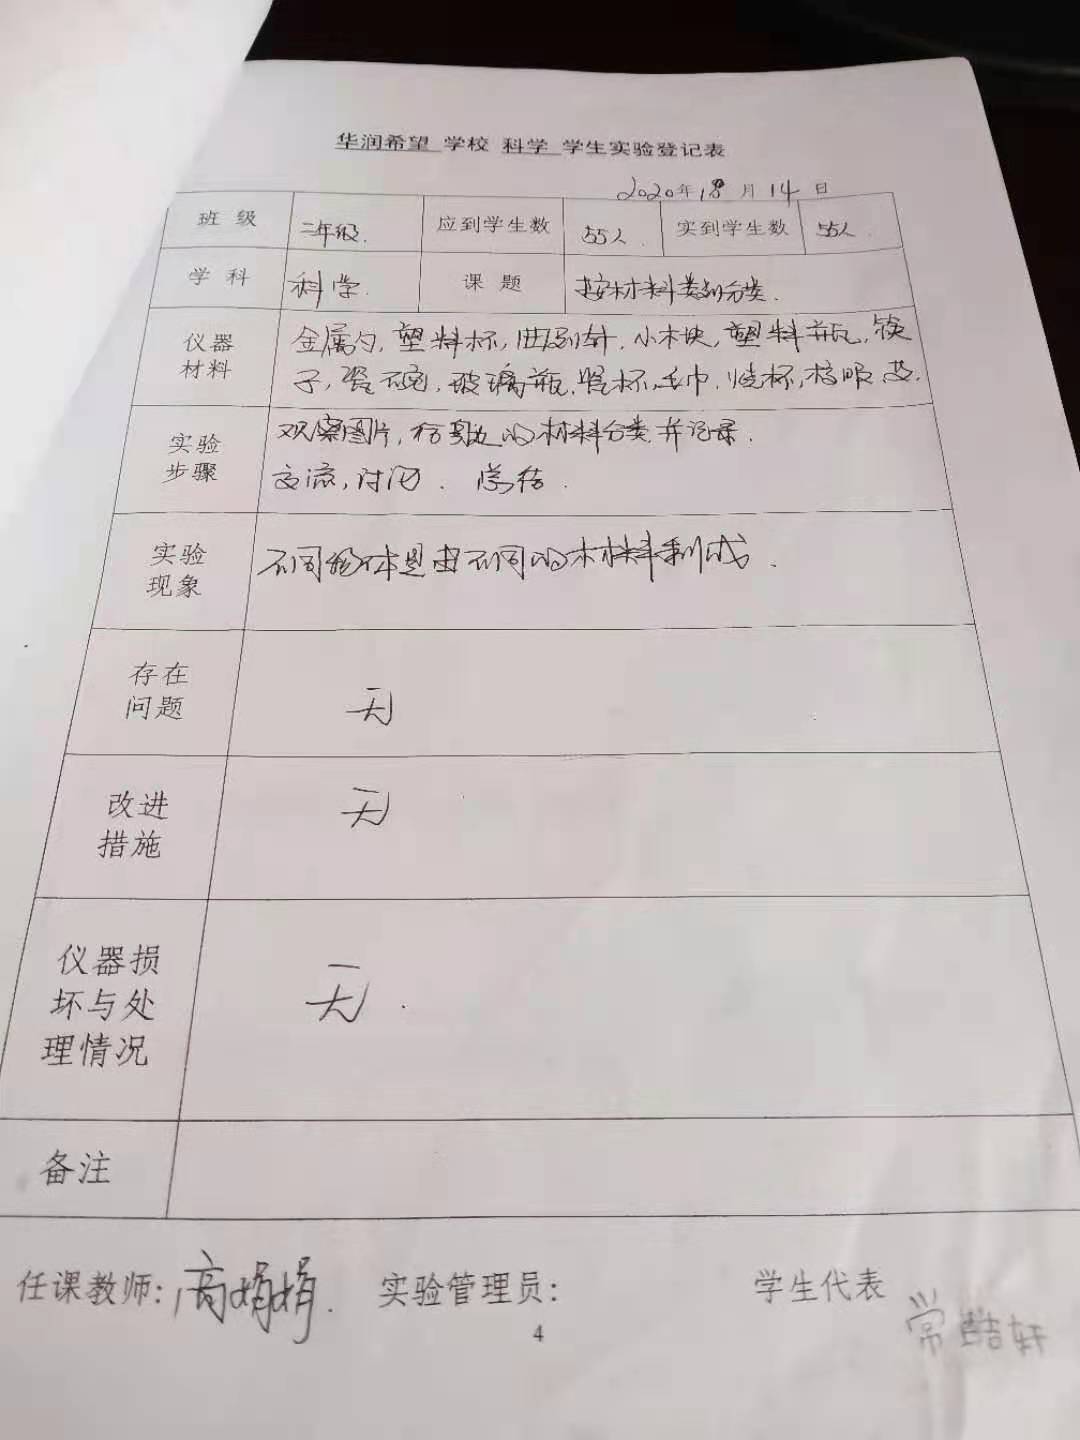 华润希望 学校 科学 学生实验登记表
2020年 月14日
班级 二年级. 应到学生数 55人. 实到学生数 55人.
学科 科学. 课题 按材料类别分类.
仪器材料 金属勺,塑料杯,曲别针,小木块,塑料瓶,筷
子,瓷碗,玻璃瓶,瓷杯,毛巾,烧杯,校服
实验步骤 观察图片,给身边的材料分类并记录.
交流,讨论. 总结.
实验现象 不同物体是由不同的材料制成.
存在问题 无
改进措施 无
仪器损坏与处理情况 无.
备注
任课教师:高娟娟. 实验管理员: 学生代表
常皓轩
4